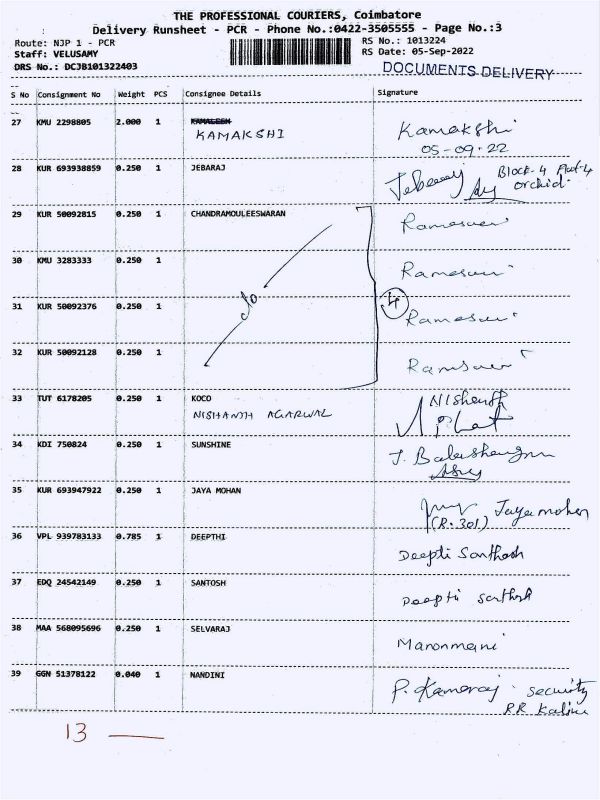 THE PROFESSIONAL COURIERS, Coimbatore
Delivery Runsheet - PCR - Phone No.:0422-3505555 - Page No.:3
Route: NJP 1 - PCR
Staff: VELUSAMY
DRS No.: DCJB101322403
RS No.: 1013224
RS Date: 05-Sep-2022
DOCUMENTS DELIVERY
S No Consignment No Weight PCS Consignee Details Signature
27 KMU 2298805 2.000 1 Kamakshi
KAMAKSHI 05-09-22
28 KUR 693938859 0.250 1 JEBARAJ Jebaraj Block-4 Flat-4
orchid
29 KUR 50092815 0.250 1 CHANDRAMOULEESWARAN
30 KMU 3283333 0.250 1
31 KUR 50092376 0.250 1
do 4
32 KUR 50092128 0.250 1
33 TUT 6178205 0.250 1 KOCO Nishanth
NISHANTH AGARWAL
34 KDI 750824 0.250 1 SUNSHINE
35 KUR 693947922 0.250 1 JAYA MOHAN Jayamohan
(R.301)
36 VPL 939783133 0.785 1 DEEPTHI Deepti Santhosh
37 EDQ 24542149 0.250 1 SANTOSH Deepti Santhosh
38 MAA 568095696 0.250 1 SELVARAJ Manonmani
39 GGN 51378122 0.040 1 NANDINI P. Kamaraj security
13